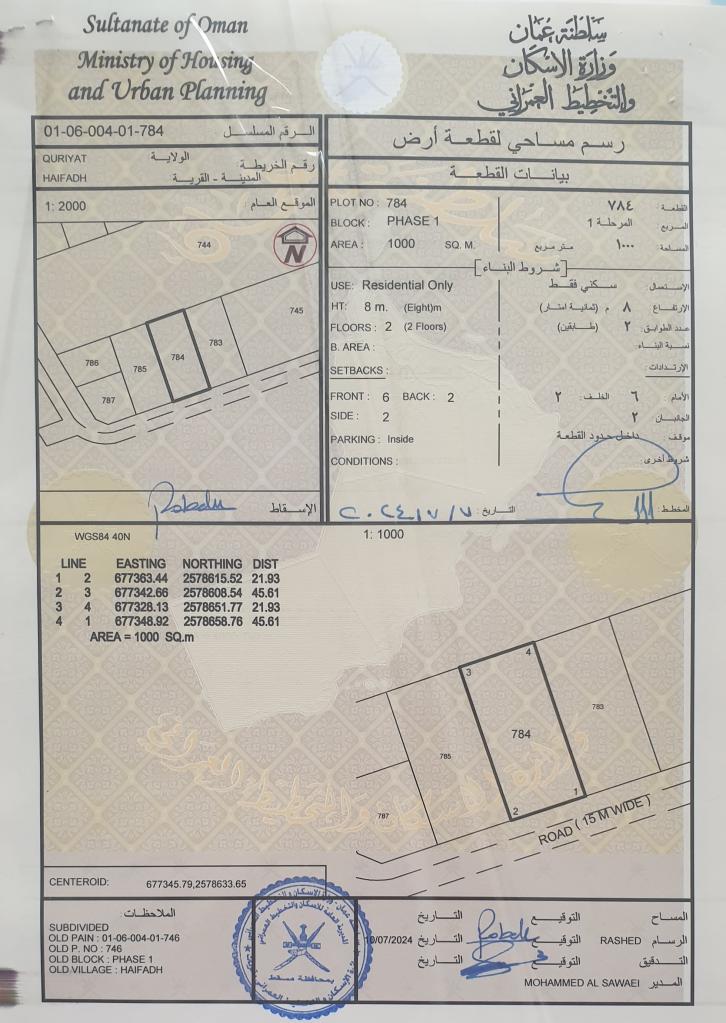 Sultanate of Oman
Ministry of Housing
and Urban Planning
سلطنة عمان
وزارة الإسكان
والتخطيط العمراني
01-06-004-01-784 الرقم المسلسل
QURIYAT الولاية
رقم الخريطة
HAIFADH المدينة - القرية
1: 2000 الموقع العام :
744
N
745
783
784
785
786
787
الإسقاط
رسم مساحي لقطعة أرض
بيانات القطعة
PLOT NO : 784 ٧٨٤ القطعة :
BLOCK : PHASE 1 المرحلة 1 المربع :
AREA : 1000 SQ. M. متر مربع ١٠٠٠ المساحة :
[شروط البناء]
USE: Residential Only سكني فقط الإستعمال :
HT: 8 m. (Eight)m (ثمانية امتار) م ٨ الإرتفاع :
FLOORS : 2 (2 Floors) (طابقين) ٢ عدد الطوابق :
B. AREA : نسبة البناء :
SETBACKS : الإرتدادات :
FRONT : 6 BACK : 2 ٢ الخلف : ٦ الأمام :
SIDE : 2 ٢ الجانبان :
PARKING : Inside داخل حدود القطعة موقف :
CONDITIONS : شروط أخرى :
٢٠٢٤/٧/٧ التاريخ : المخطط :
WGS84 40N
1: 1000
LINE EASTING NORTHING DIST
1 2 677363.44 2578615.52 21.93
2 3 677342.66 2578608.54 45.61
3 4 677328.13 2578651.77 21.93
4 1 677348.92 2578658.76 45.61
AREA = 1000 SQ.m
4
3
783
784
785
787
1
2
ROAD ( 15 M WIDE )
CENTEROID: 677345.79,2578633.65
الملاحظات :
SUBDIVIDED
OLD PAIN : 01-06-004-01-746
OLD P. NO : 746
OLD BLOCK : PHASE 1
OLD VILLAGE : HAIFADH
بمحافظة مسقط
التاريخ التوقيع المساح
10/07/2024 التاريخ التوقيع RASHED الرسام
التاريخ التوقيع التدقيق
MOHAMMED AL SAWAEI المدير